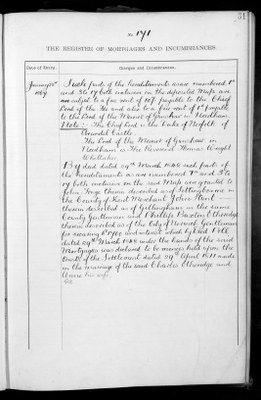 31
No. 171
THE REGISTER OF MORTGAGES AND INCUMBRANCES.
Date of Entry.
Charges and Incumbrances.
January
1864
Such part of the hereditaments as are numbered 1a
and 3 to 17 both inclusive in the deposited Map are
subject to a fee rent of 10/- payable to the Chief
Lord of the Fee and also to a fee rent of 1s payable
to the Lord of the Manor of Gunshaw in Needham
Note: The Chief Lord is the Duke of Norfolk of
Arundel Castle
The Lord of the Manor of Gunshaw in
Needham is The Reverend Thomas Wright
Whitaker
By deed dated 29th March 1848 such parts of
the hereditaments as are numbered and 3 to
17 both inclusive on the said Map are granted to
John thereon described as of Sittingbourne in
the County of Kent Merchant John
thereon described as of Gillingham in the same
County Gentleman and Phillip Barton Etheridge
thereon described as of the City of Norwich Gentleman
for securing £0900 and interest which by Deed Poll
dated 29th March 1848 under the hands of the said
Mortgagees was declared to be moneys held upon the
trusts of the Settlement dated 29th April 1811 made
on the marriage of the said Charles Etheridge and
Anne his wife